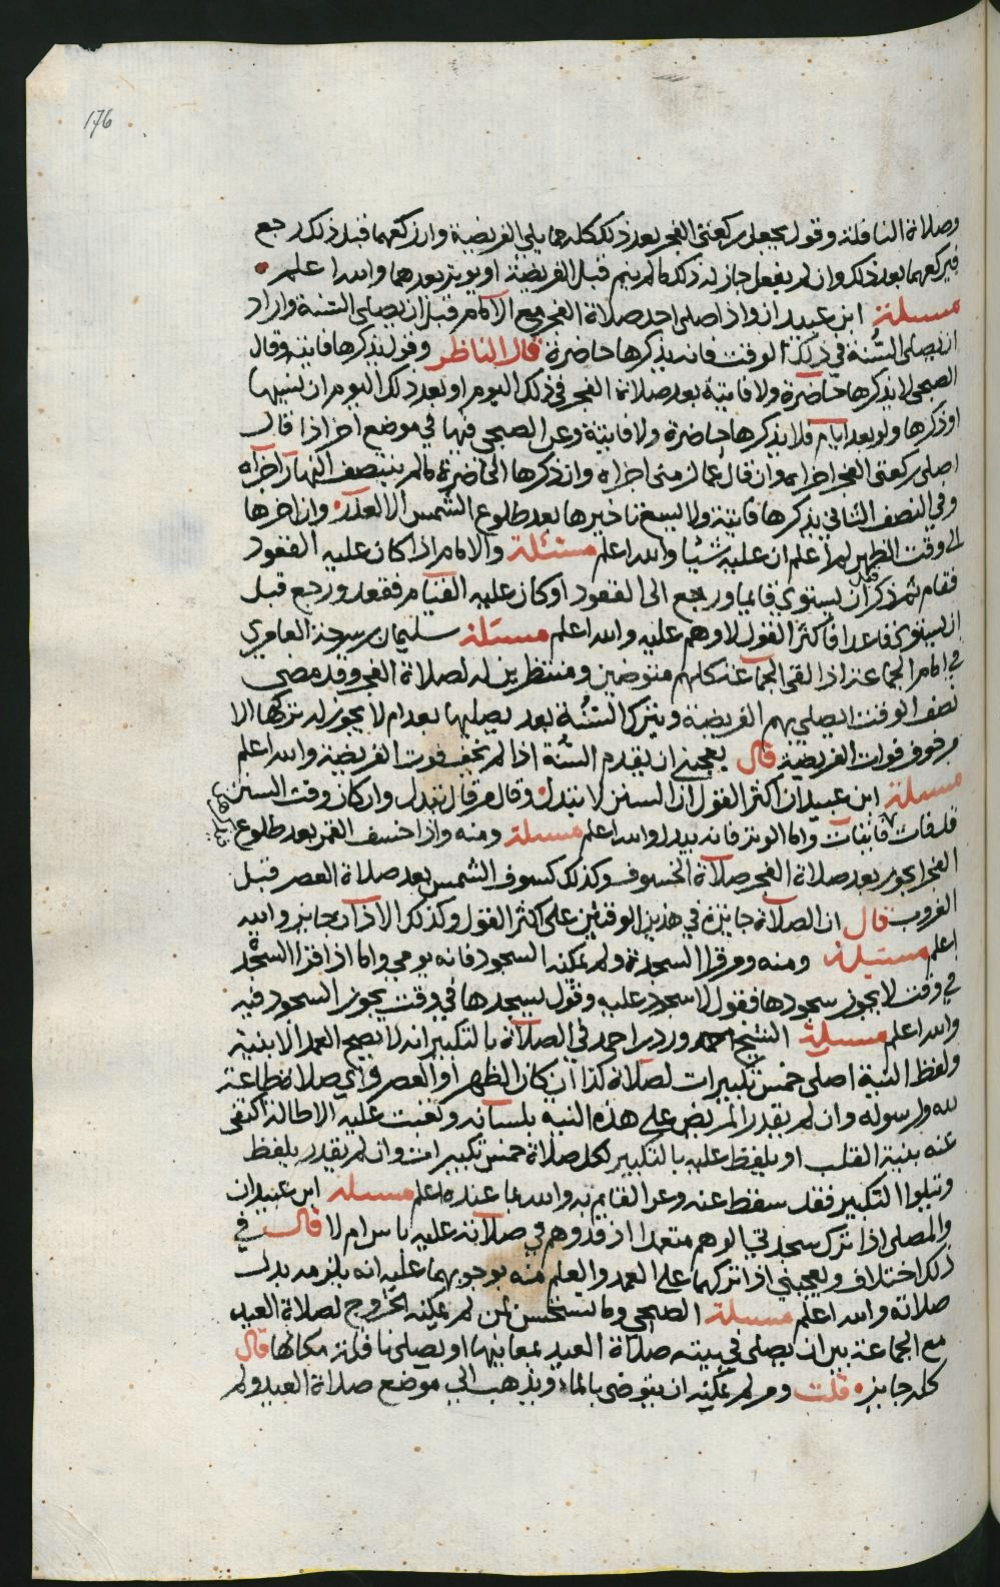 176
وصلاة النافلة وقول يجعل ركعتي الفجر بعد ذلك كله مما يلي الفريضة وان ركعهما قبل ذلك رجع
فيركعهما بعد ذلك وان لم يفعل جاز له ذلك مالم يتم قبل الفريضة او يوتر بعدهما والله اعلم
مسئلة ابن عبيدان واذا صلى احد صلاة الفجر مع الامام قبل ان يصلي السنة واراد
ان يصلي السنة في ذلك الوقت فانه يذكرها حاضرة قال الناظر وقول يذكرها فايتة وقال
الصبحي لا يذكرها حاضرة ولا فايتة بعد صلاة الفجر في ذلك اليوم او بعد ذلك اليوم ان نسيها
او ذكرها ولو بعد ايام فلا يذكرها حاضرة ولا فايتة وعن الصبحي فيها في موضع اخر اذا قال
اصلي ركعتي الفجر اجزاه وان قال عما لزمني اجزاه وان ذكرها الحاضرة مالم ينتصف النهار اجزاه
وفي النصف الثاني يذكرها فايتة ولا يسع تاخيرها بعد طلوع الشمس الا لعذر وان اخرها
الى وقت الظهر لم اعلم ان عليه شيئا والله اعلم مسئلة والامام اذا كان عليه القعود
فقام ثم ذكر قبل ان يستوي قايما ورجع الى القعود او كان عليه القيام فقعد ورجع قبل
ان يستوي قاعدا فاكثر القول لا وهم عليه والله اعلم مسئلة سليمان بن سرحة العامري
في امام الجماعة اذا لقي الجماعة كلهم متوضين ومنتظرين له لصلاة الفجر وقد مضى
نصف الوقت ايصلي بهم الفريضة ويترك السنة بعد يصليها بعد ام لا يجوز له تركها الا
من خوف فوات الفريضة قال يعجبني ان يقدم السنة اذا لم يخف فوت الفريضة والله اعلم
مسئلة ابن عبيدان اكثر القول ان السنن لا تبدل وقال من قال تبدل وان كان وقت السنن
قد فات فايتات واما الوتر فانه يبدل والله اعلم مسئلة ومنه واذا خسف القمر بعد طلوع
الفجر ايجوز بعد صلاة الفجر صلاة الخسوف وكذلك كسوف الشمس بعد صلاة العصر قبل
الغروب قال ان الصلاة جايزة في هذين الوقتين على اكثر القول وكذلك الاذان جايز والله
اعلم مسئلة ومنه ومن قرا السجدة ولم يمكنه السجود فانه يومي واما اذا قرا السجدة
في وقت لا يجوز سجودها فقول لا سجود عليه وقول يسجدها في وقت يجوز السجود فيه
والله اعلم مسئلة الشيخ ورد بن احمد في الصلاة بالتكبير انه لا يصح العمل الا بنية
ولفظ النية اصلي خمس تكبيرات لصلاة كذا ان كان الظهر او العصر واي صلاة طاعة
لله ولرسوله وان لم يقدر المريض على هذه النية بلسانه وتعنت عليه الاطالة اكتفى
عنه بنية القلب او يلفظ عليه بالتكبير لكل صلاة خمس تكبيرات وان لم يقدر يلفظ
ويتلوا التكبير فقد سقط عنه وعن القايم به والله بما عنده اعلم مسئلة ابن عبيدان
والمصلي اذا ترك سجدتي الوهم متعمدا اذ قد وهم في صلاته عليه باس ام لا قال في
ذلك اختلاف ويعجبني اذا تركهما على العمد والعلم منه بوجوبهما عليه انه يلزمه بدل
صلاته والله اعلم مسئلة الصبحي وما تستحسن لمن لم يمكنه الخروج لصلاة العيد
مع الجماعة بين ان يصلي في بيته صلاة العيد بمعانيها او يصلي نافلة مكانها قال
كله جايز قلت ومن لم يمكنه ان يتوضى بالماء ويذهب الى موضع صلاة العيد ولم